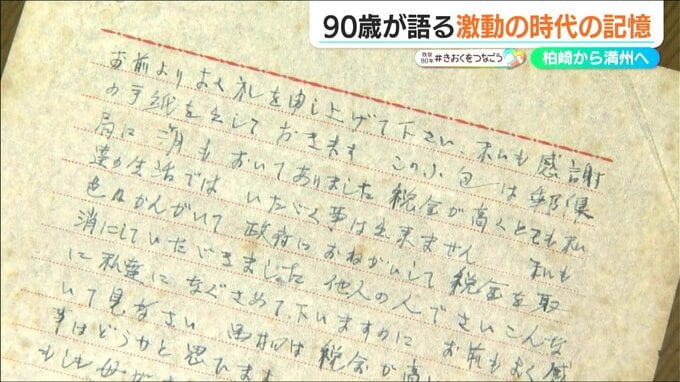 90歳が語る激動の時代の記憶
戦後80年 #きおくをつなごう
柏崎から満州へ
お前よりよく礼を申し上げて下さい 私も感謝
の手紙を出しておきます この小包は郵便
局に 月もおいてありました 税金が高くとても私
達の生活では いたゞく事は出来ません 私も
色々かんがいて 政府におねがいして 税金を取
消にしていたゞきました 他人の人でさいこんな
に私達になぐさめて下いますのに お前もよく感
いて見なさい は税金が高
事はどうかと思ひます
もしも母が